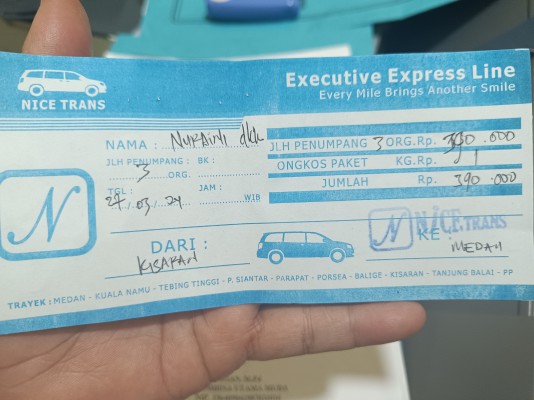 NICE TRANS
Executive Express Line
Every Mile Brings Another Smile
NAMA : NURAINI dkk
JLH PENUMPANG : 3 ORG. BK :
TGL : 27/03/24 JAM : WIB
JLH PENUMPANG 3 ORG.Rp. 390.000
ONGKOS PAKET KG.Rp.
JUMLAH Rp. 390.000
N
N NICE TRANS
DARI : KISARAN
KE : MEDAN
TRAYEK : MEDAN - KUALA NAMU - TEBING TINGGI - P. SIANTAR - PARAPAT - PORSEA - BALIGE - KISARAN - TANJUNG BALAI - PP